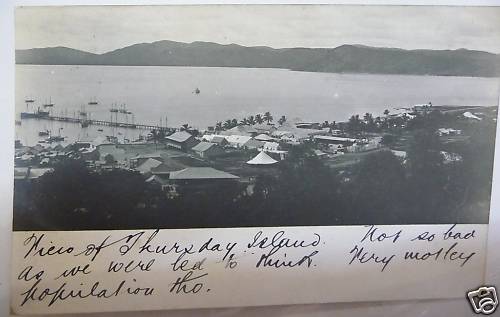 View of Thursday Island. Not so bad
as we were led to think. Very motley
population tho.